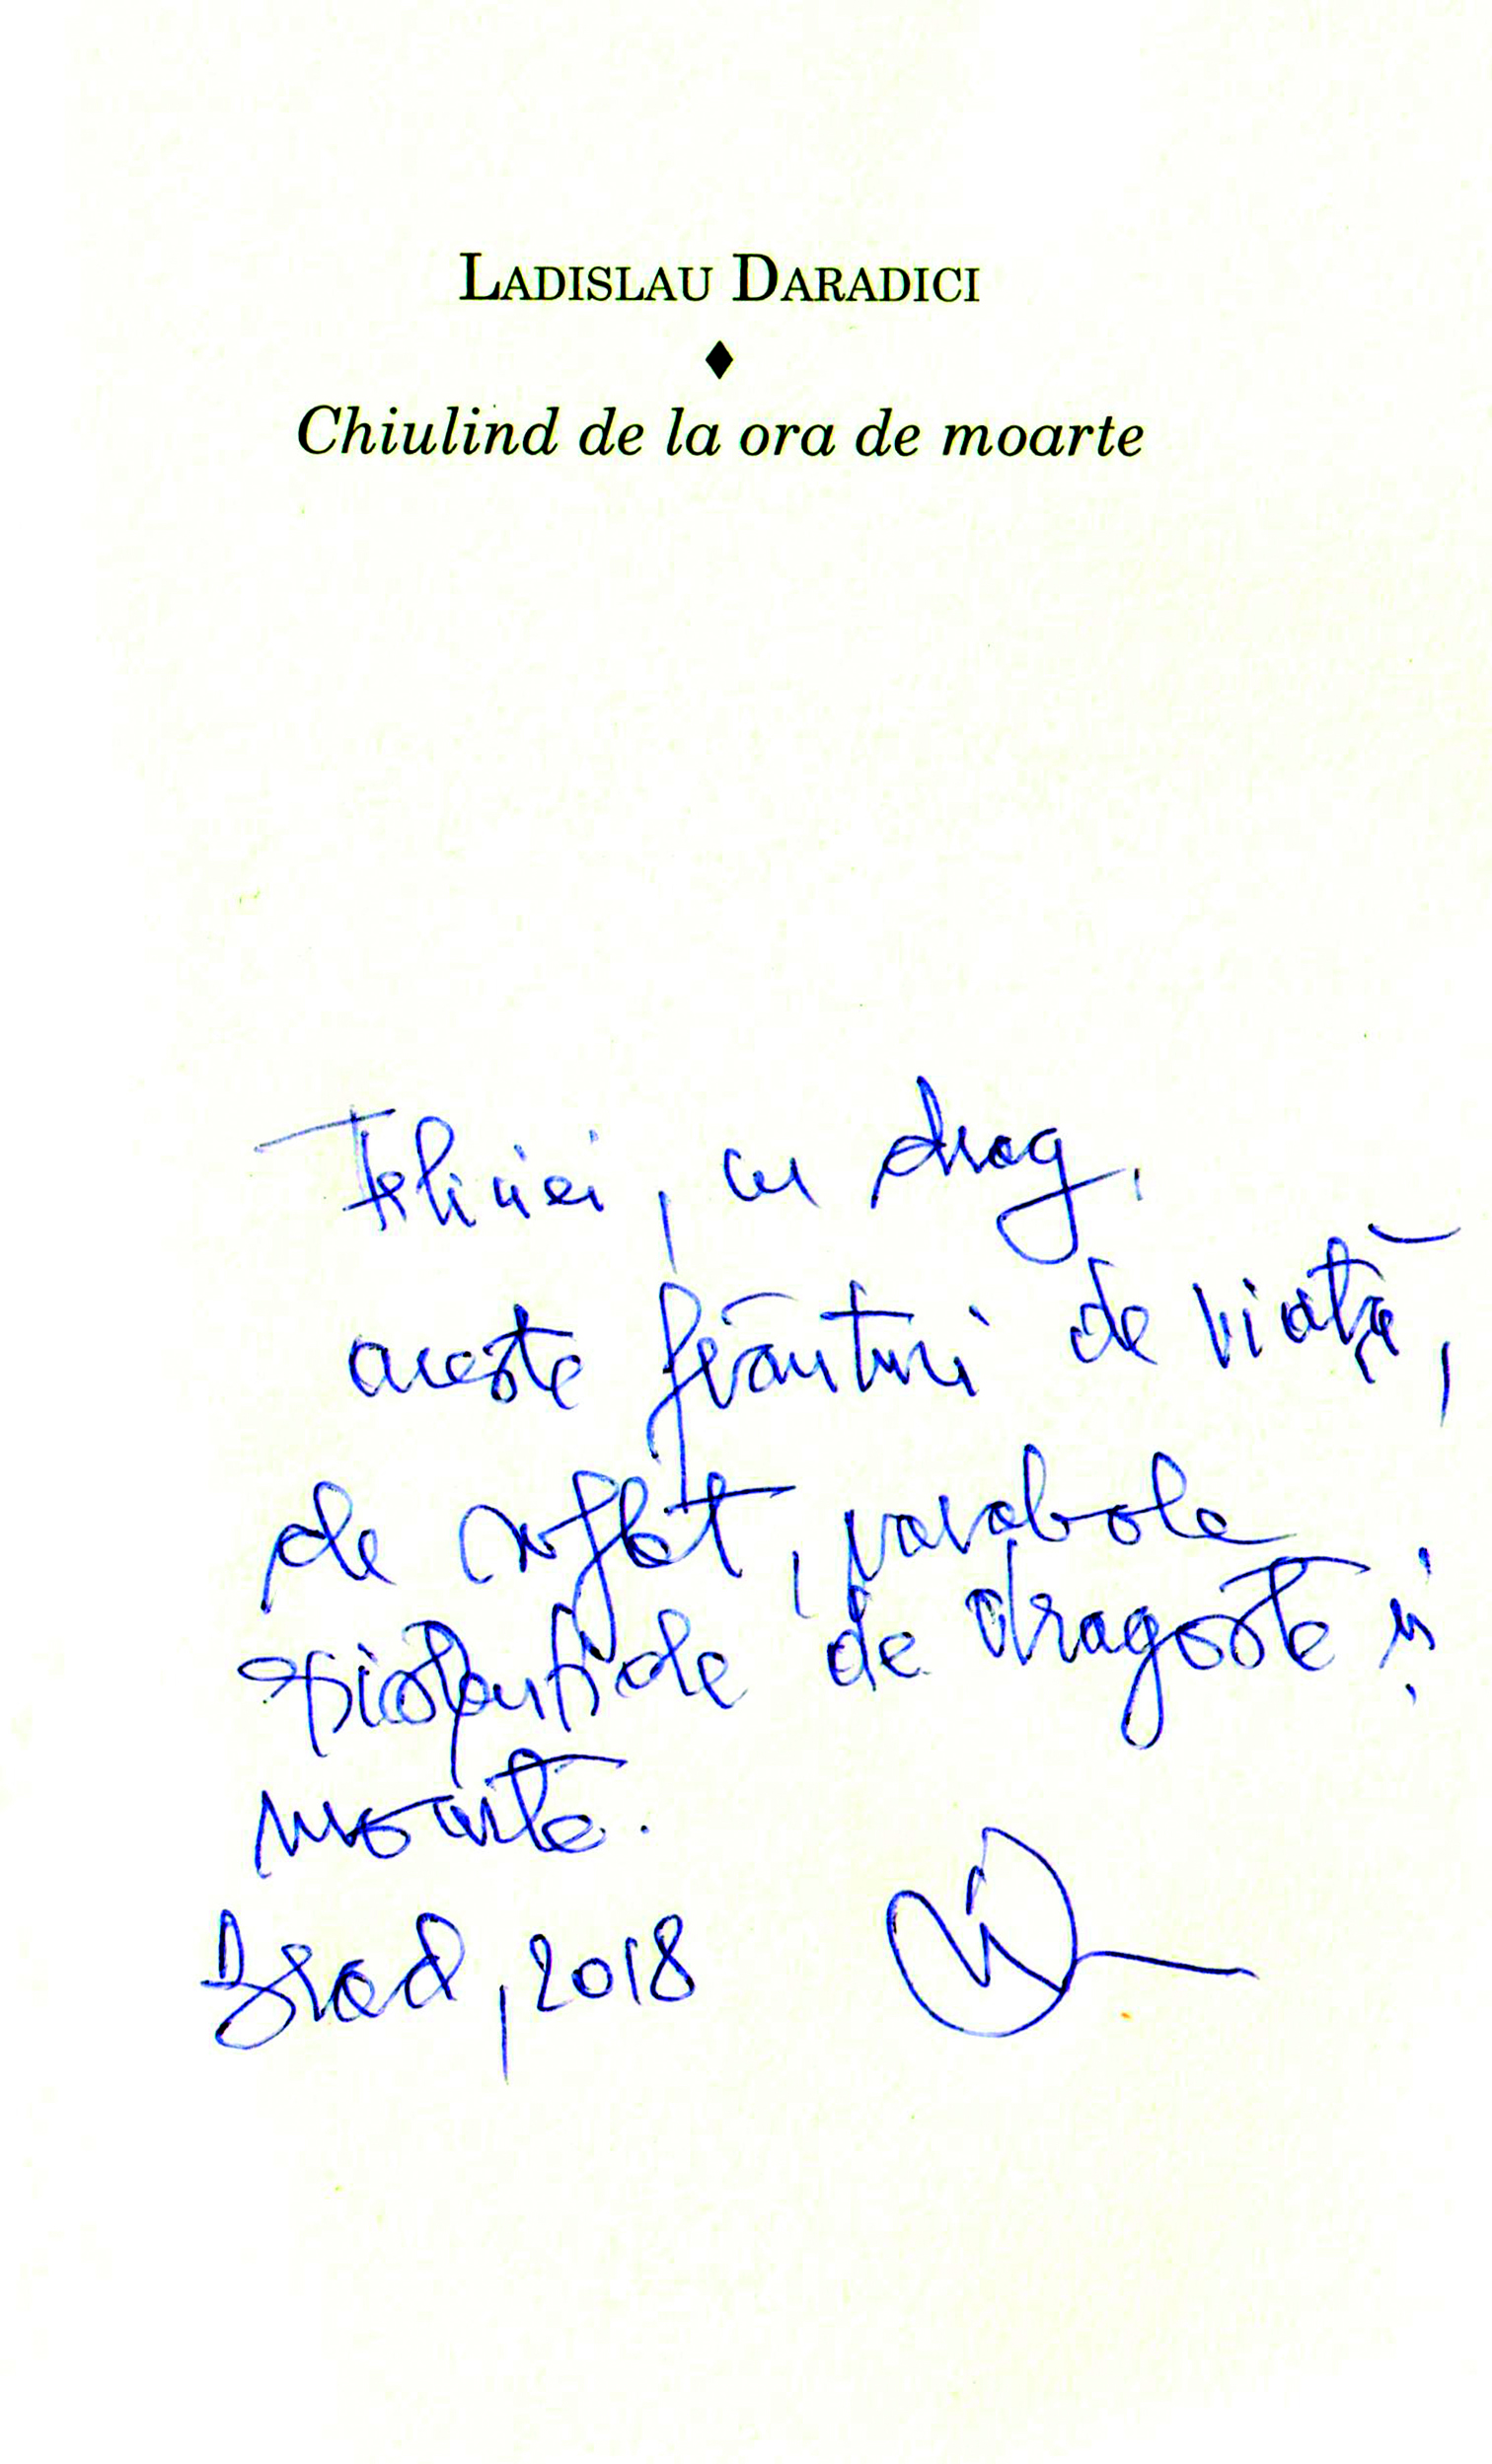 LADISLAU DARADICI
♦
Chiulind de la ora de moarte
Feliciei, cu drag,
aceste frânturi de viață,
de suflet, parabole
existențiale de dragoste și
moarte.
Brad, 2018